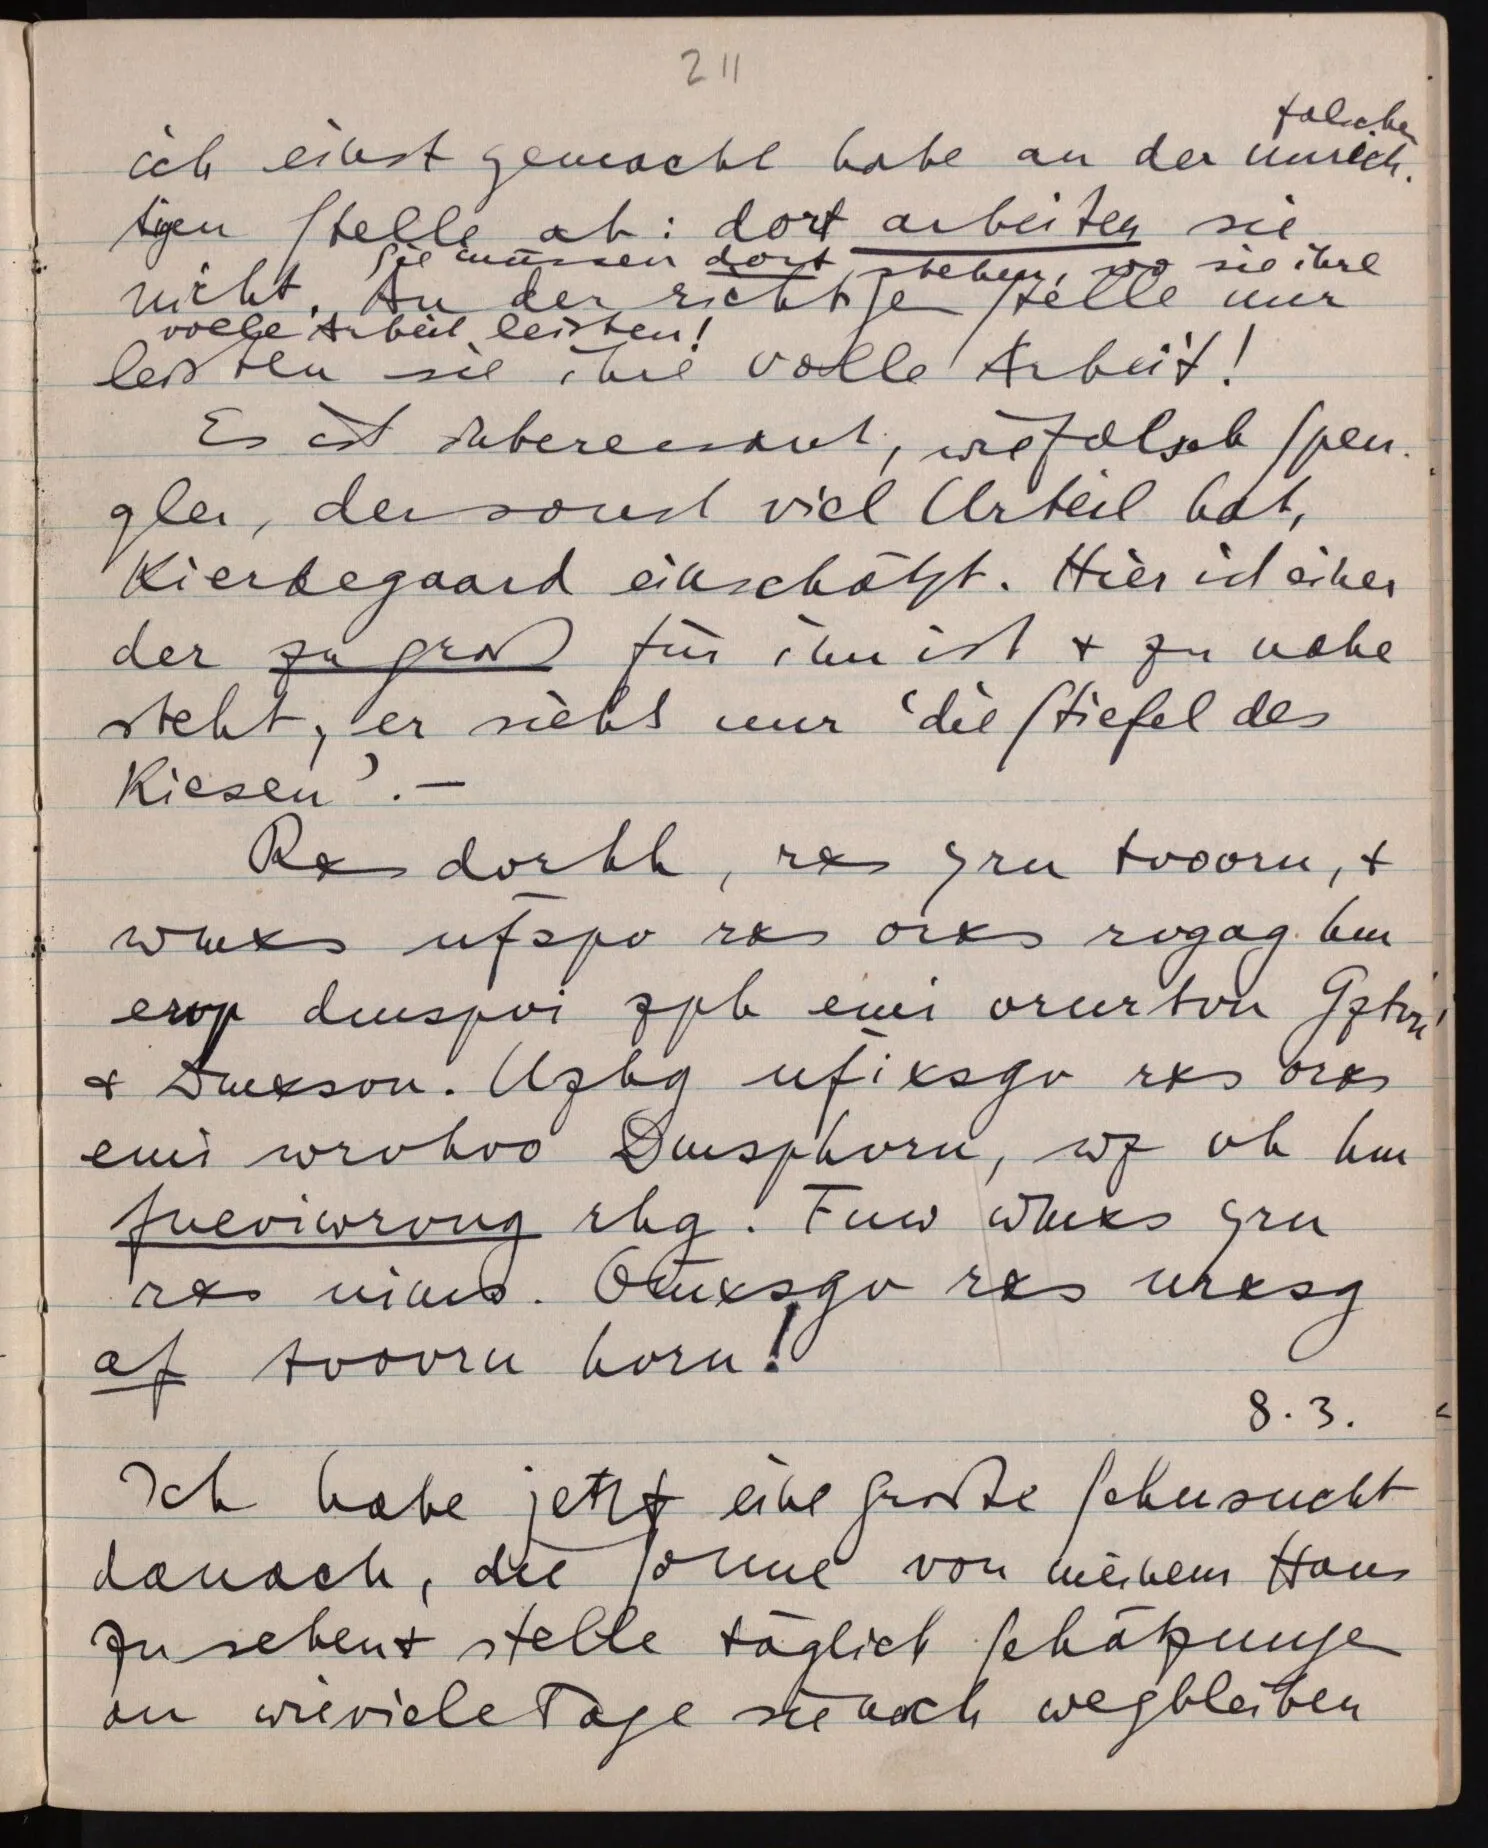 211
ich einst gemacht habe an der falschen unrich-
tigen Stelle ab: dort arbeiten sie
nicht. Sie müssen dort stehen, wo sie ihre
An der richtigen Stelle nur
volle Arbeit leisten!
leisten sie ihre volle Arbeit!
Es ist interessant, wie falsch Spen-
gler, der sonst viel Urteil hat,
Kierkegaard einschätzt. Hier ist einer
der zu groß für ihn ist & zu nahe
steht, er sieht nur ‘die Stiefel des
Riesen’. –
Rxs dvrhh, rxs yrn tvovrn, &
wmxs uf̈spv rxs orxs rvgag hm
ervp dmspvi zph emi vrnrtvn Gztvn
& Dmxsvn. Uzhg uf̈ixsgv rxs orxs
emi wrvhvo Dmsphvrn, wz vh hm
fneviwrvng rhg. Fnw wmxs yrn
rxs uims. Om̈xsgv rxs nrxsg
zf tvovrn hvrn!
8.3.
Ich habe jetzt eine große Sehnsucht
danach, die Sonne von meinem Haus
zu sehen & stelle täglich Schätzungen
an wieviele Tage sie noch wegbleiben